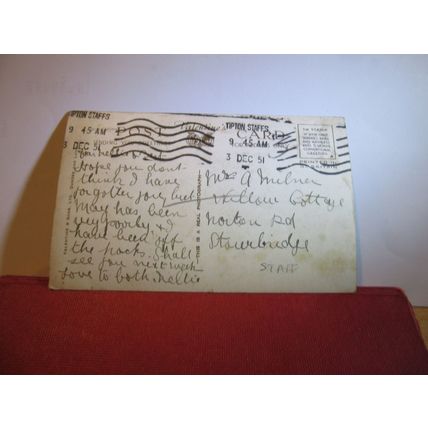 TIPTON STAFFS
9 45 AM
3 DEC 51
TIPTON STAFFS
9 45 AM
3 DEC 51
POST CARD
hope you dont
think I have
forgotten you but
May has been
very poorly & I
have been off
the pack. Shall
see you next week
Love to both. Nellie
VALENTINE & SONS LTD
THIS IS A REAL PHOTOGRAPH
Mrs A Milner
Willow Cottage
Norton Rd
Stourbridge
STAFF